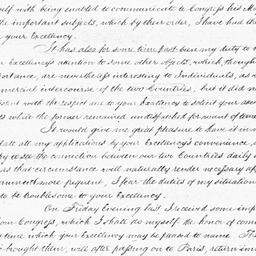 self with being enabled to communicate to Congress his Ma
the important subjects, which by their order, I have had th
your Excellency.
It has also for some time past been my duty to
r Excellency's attention to some other objects, which, though
portance, are nevertheless interesting to Individuals, as
mmercial intercourse of the two Countries, but it did n
sistent with the respect due to your Excellency to solicit your atte
s while the former remained undispatched for want of time
It would give me great pleasure to have it in m
date all my applications by your Excellency's convenience,
by as the connection between our two Countries daily
as that circumstance will naturally render necessary ap
rnment more frequent, I fear the duties of my situation
to be troublesome to your Excellency.
On Friday Evening last I received some import
from Congress, which I shall do myself the honor of comm
y time which your Excellency may be pleased to name. The
brought them, will after passing on to Paris, return imm